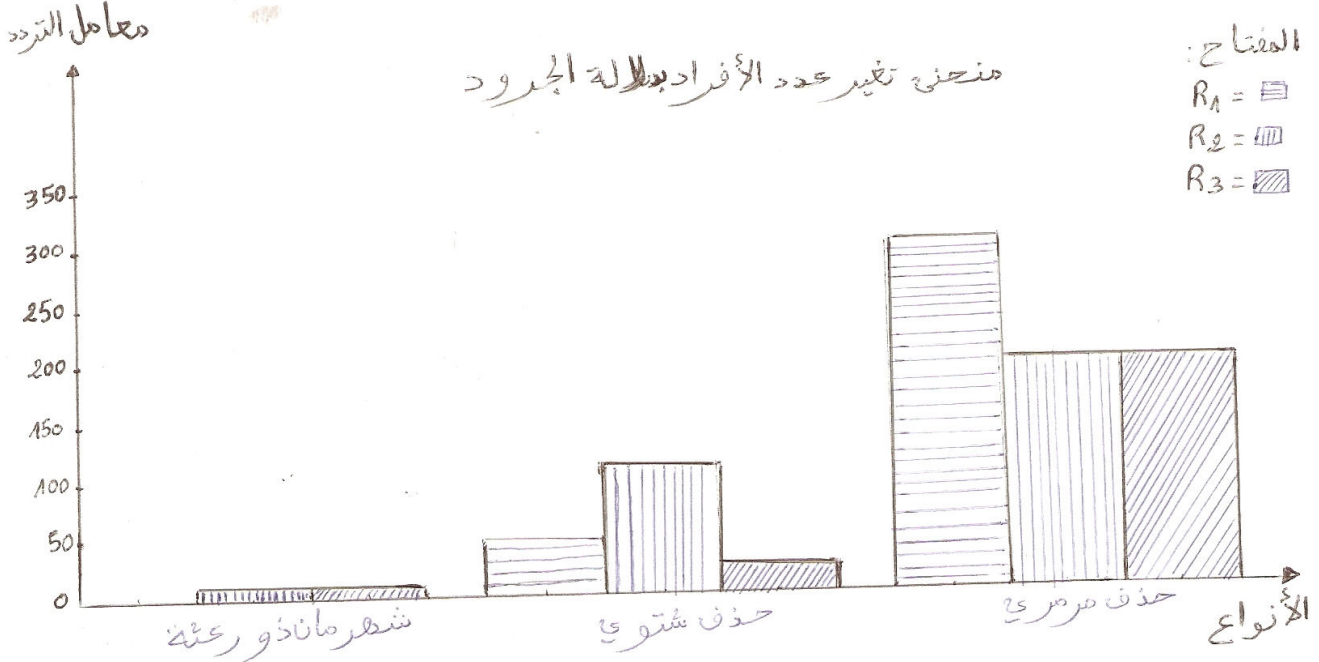 معامل التردد
منحنى تغير عدد الأفراد بدلالة الجرود
المفتاح:
R1 =
R2 =
R3 =
350
300
250
200
150
100
50
0
شهرمان ذو رعثة
حذف شتوي
حذف مرمري
الأنواع